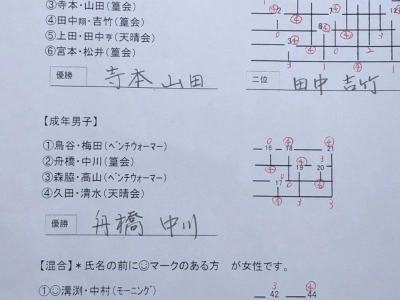 ③寺本・山田(篁会)
④田中翔・吉竹(篁会)
⑤上田・田中亨(天晴会)
⑥宮本・松井(篁会)
優勝 寺本 山田 二位 田中 吉竹
【成年男子】
①鳥谷・梅田(ベンチウォーマー)
②舟橋・中川(篁会)
③森脇・高山(ベンチウォーマー)
④久田・清水(天晴会)
0 ④ ④
16 18 21
④ 3
19 20
0 0
17
④ 3 3
優勝 舟橋 中川
【混合】*氏名の前に☺マークのある方 が女性です。
①☺溝渕・中村(モーニング)
3 ④
42 44